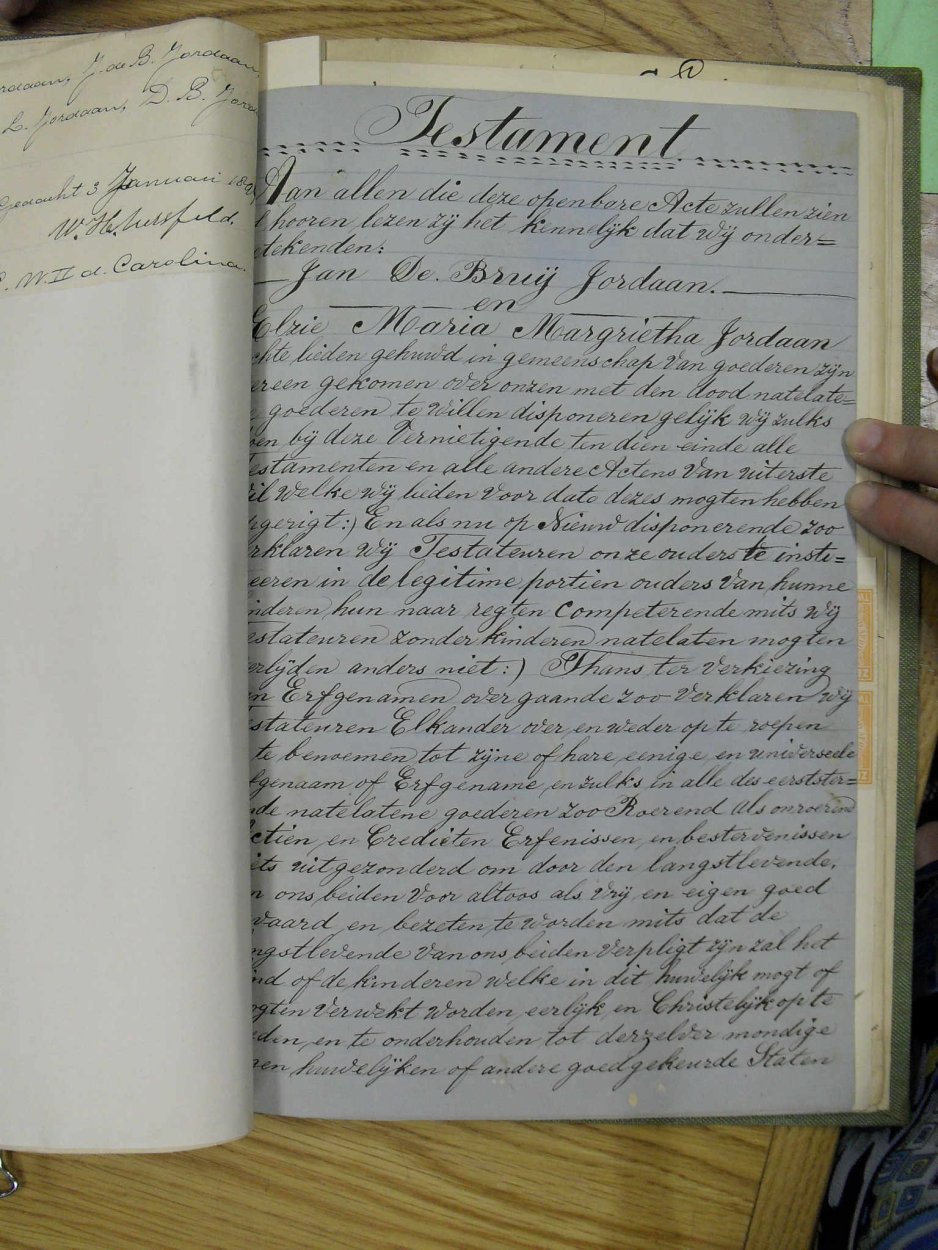 Jordaan, J. de B. Jordaan,
L. Jordaan, D. B.
3 Januari
W. H.
d. Carolina.
Testament
Aan allen die deze openbare Acte zullen zien
hooren lezen zÿ het kennelÿk dat Wÿ onder=
tekenden:
Jan De. Bruÿ Jordaan.
en
Elzie Maria Margrietha Jordaan
chte lieden gehuwd in gemeenschap Van goederen zÿn
ereen gekomen over onzen met den dood natelate=
e goederen te Willen disponeren gelÿk Wÿ zulks
oen bÿ deze Vernietigende ten dien einde alle
estamenten en alle andere Actens Van uiterste
il Welke Wÿ lieden Voor dato dezes mogten hebben
pgerigt:) En als nu op Nieuw disponerende zoo
erklaren Wÿ Testateuren onze ouders te insti=
eeren in de legitime portien ouders Van hunne
inderen hun naar regten Competerende mits Wÿ
estateuren zonder kinderen natelaten mogten
erlÿden anders niet:) Thans ter Verkiezing
en Erfgenamen over gaande zoo Verklaren Wÿ
estateuren Elkander over en weder op te roepen
te benoemen tot zÿne of hare eenige en universeele
fgenaam of Erfgename en zulks in alle des eerstster=
nde natelatene goederen zoo Roerend als onroerend
ctiën en Crediëten Erfenissen en bestervenissen
iets uitgezonderd om door den langstlevende.
n ons beiden Voor altoos als Vrÿ en eigen goed
vaard en bezeten te Worden mits dat de
ngstlevende Van ons beiden Verpligt zÿn zal het
ind of de kinderen welke in dit huwelÿk mogt of
ogten Verwekt Worden eerlÿk en Christelÿk op te
eden en te onderhouden tot derzelver mondige
ren huwelÿken of andere goedgekeurde Staten